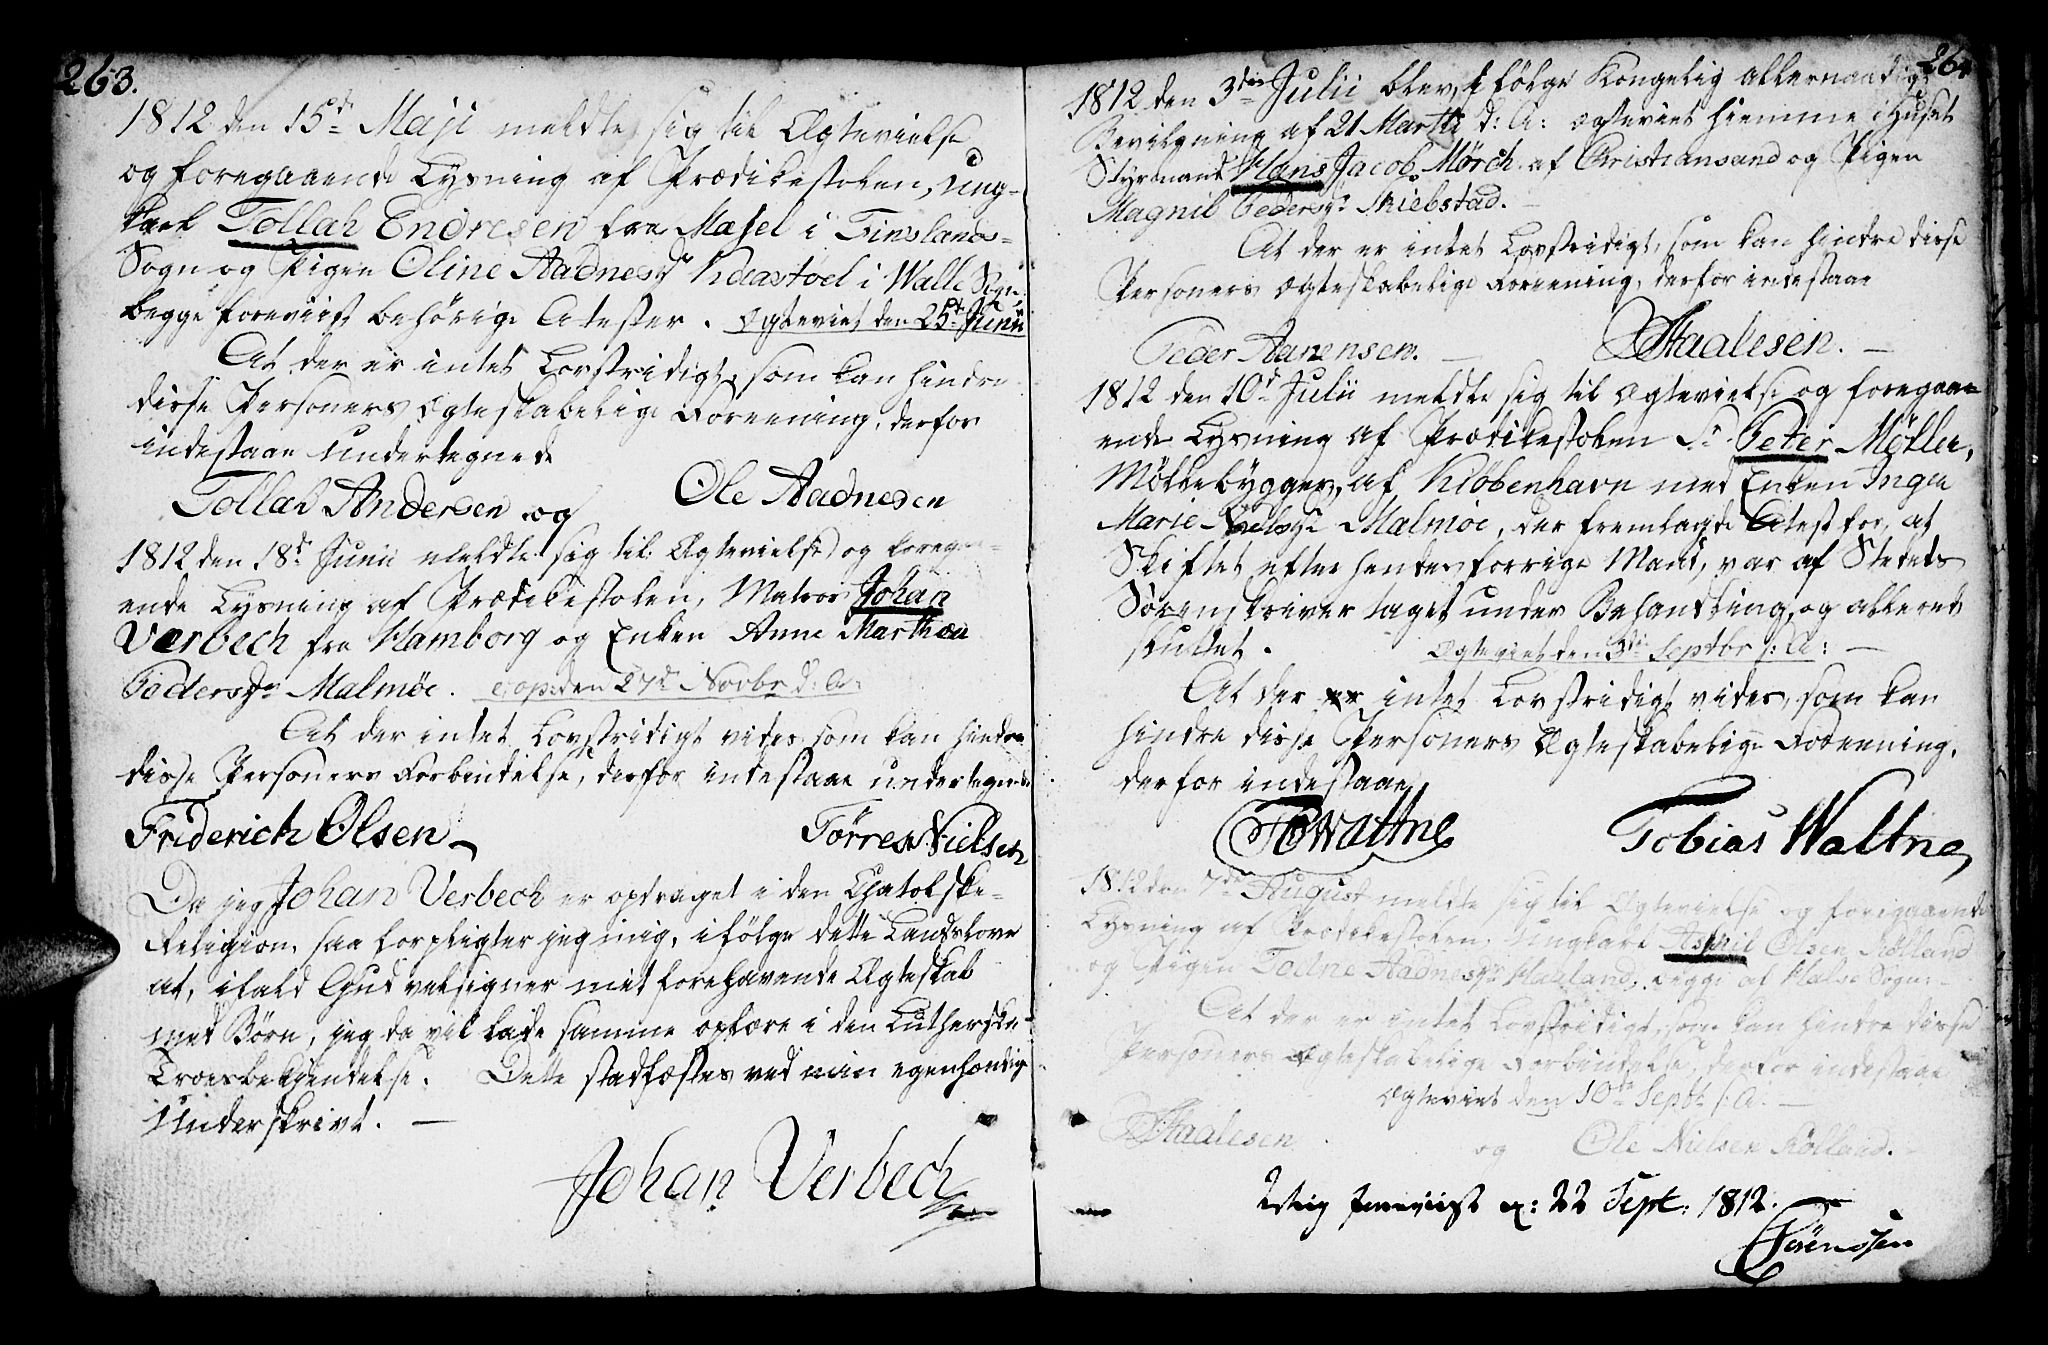 263.
1812 den 15d Maji meldte sig til Ægtevielse
og foregaaende Lysning af Prædikestolen, Ung-
karl Tollak Endresen fra Masel i Finslands-
Sogn og Pigen Oline Aadnesdr i Walle Sogn,
begge foreviist behørige Atester. Ægteviet den 25d Junii
At der er intet Lovstridigt, som kan hindre
disse Personers Ægteskabelige Foreening, derfor
indestaae undertegnede
Tollak Andersen og Ole Aadnesen
1812 den 18d Junii meldte sig til Ægtevielse og foregaa-
ende Lysning af Prædikestolen, Matros Johan
Værbech fra Hamborg og Enken Anne Marthea
Pedersdr Malmöe. cop: den 27d Novbr d: A:
At der intet Lovstridigt vides som kan hindre
disse Personers Forbindelse, derfor indestaae undertegnede
Friderich Olsen Törres Nielsen
Da jeg Johan Verbech er opdraget i den Chatolske-
Religion, saa forpligter jeg mig, ifölge dette Landslove
at, ifald Gud velsigner mit forehavende Ægteskab
med Börn, jeg da vil lade samme oplære i den Lutherske
Troesbekjendelse. Dette stadfæstes ved min egenhændig
Underskrivt.
Johan Verbech
264
1812 den 3die Julii blev, i fölge Kongelig allernaadigst
Bevilgning af 21 Martii d: A: ægteviet hiemme i Huset
Styrmand Hans Jacob Mörch af Christiansand og Pigen
Magnil Pedersdr Skiebstad.
At der er intet Lovstridigt, som kan hindre disse
Personers Ægteskabelige Foreening, derfor indestaae
Peder Aanensen. Staalesen.
1812 den 10d Julii meldte sig til Ægtevielse og foregaa-
ende Lysning af Prædikestolen Sr. Peter Möller,
Möllebygger, af Kiöbenhavn med Enken Inger
Marie Nielsdr Malmöe, der fremlagde Atest for, at
Skiftet efter hendes forrige Mand, var af Stedets
Sorenskriver taget under Behandling, og allerede
sluttet. Ægteviet den 3die Septbr s: A:
At der er intet Lovstridigt vides, som kan
hindre disse Personers Ægteskabelige Foreening,
derfor indestaae
Tobias Waltne
1812 den 7de August meldte sig til Ægtevielse og foregaaende
Lysning af Prædikestolen, Ungkarl Askil Olsen Kölland
og Pigen Todne Aadnesdr Haaland, begge af Halse Sogn.
At der er intet Lovstridigt, som kan hindre disse
Personers Ægteskabelige Forbindelse, derfor indestaae
Ægteviet den 10de Septbr s: A:
Staalesen og Ole Nielsen Kölland.
foreviist 22 Sept. 1812.
Sörenssen